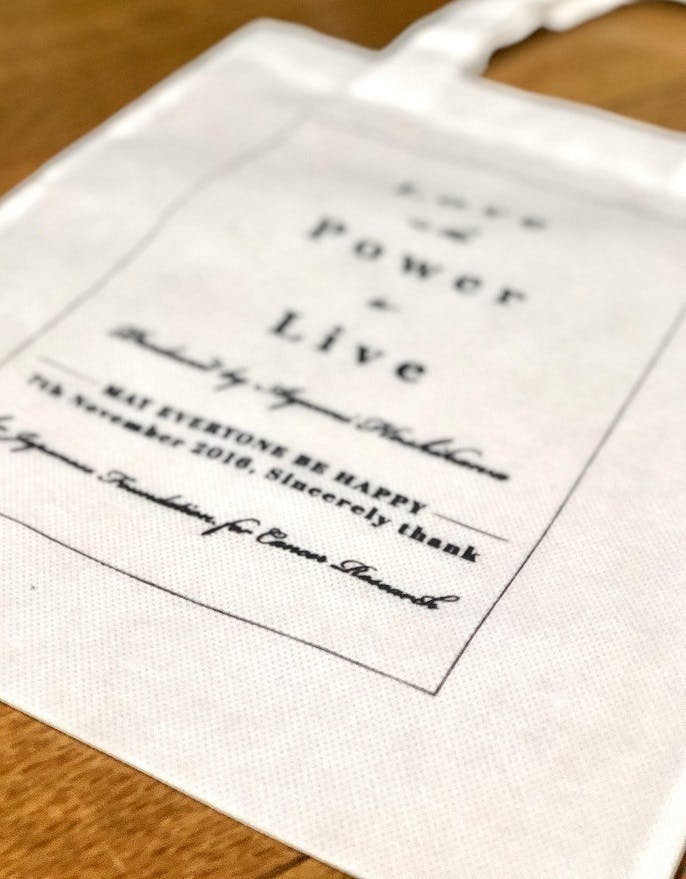 Love
is the
Power
to
Live
Produced by Ayumi
MAY EVERYONE BE HAPPY
7th November 2016, Sincerely thank
Japanese Foundation for Cancer Research